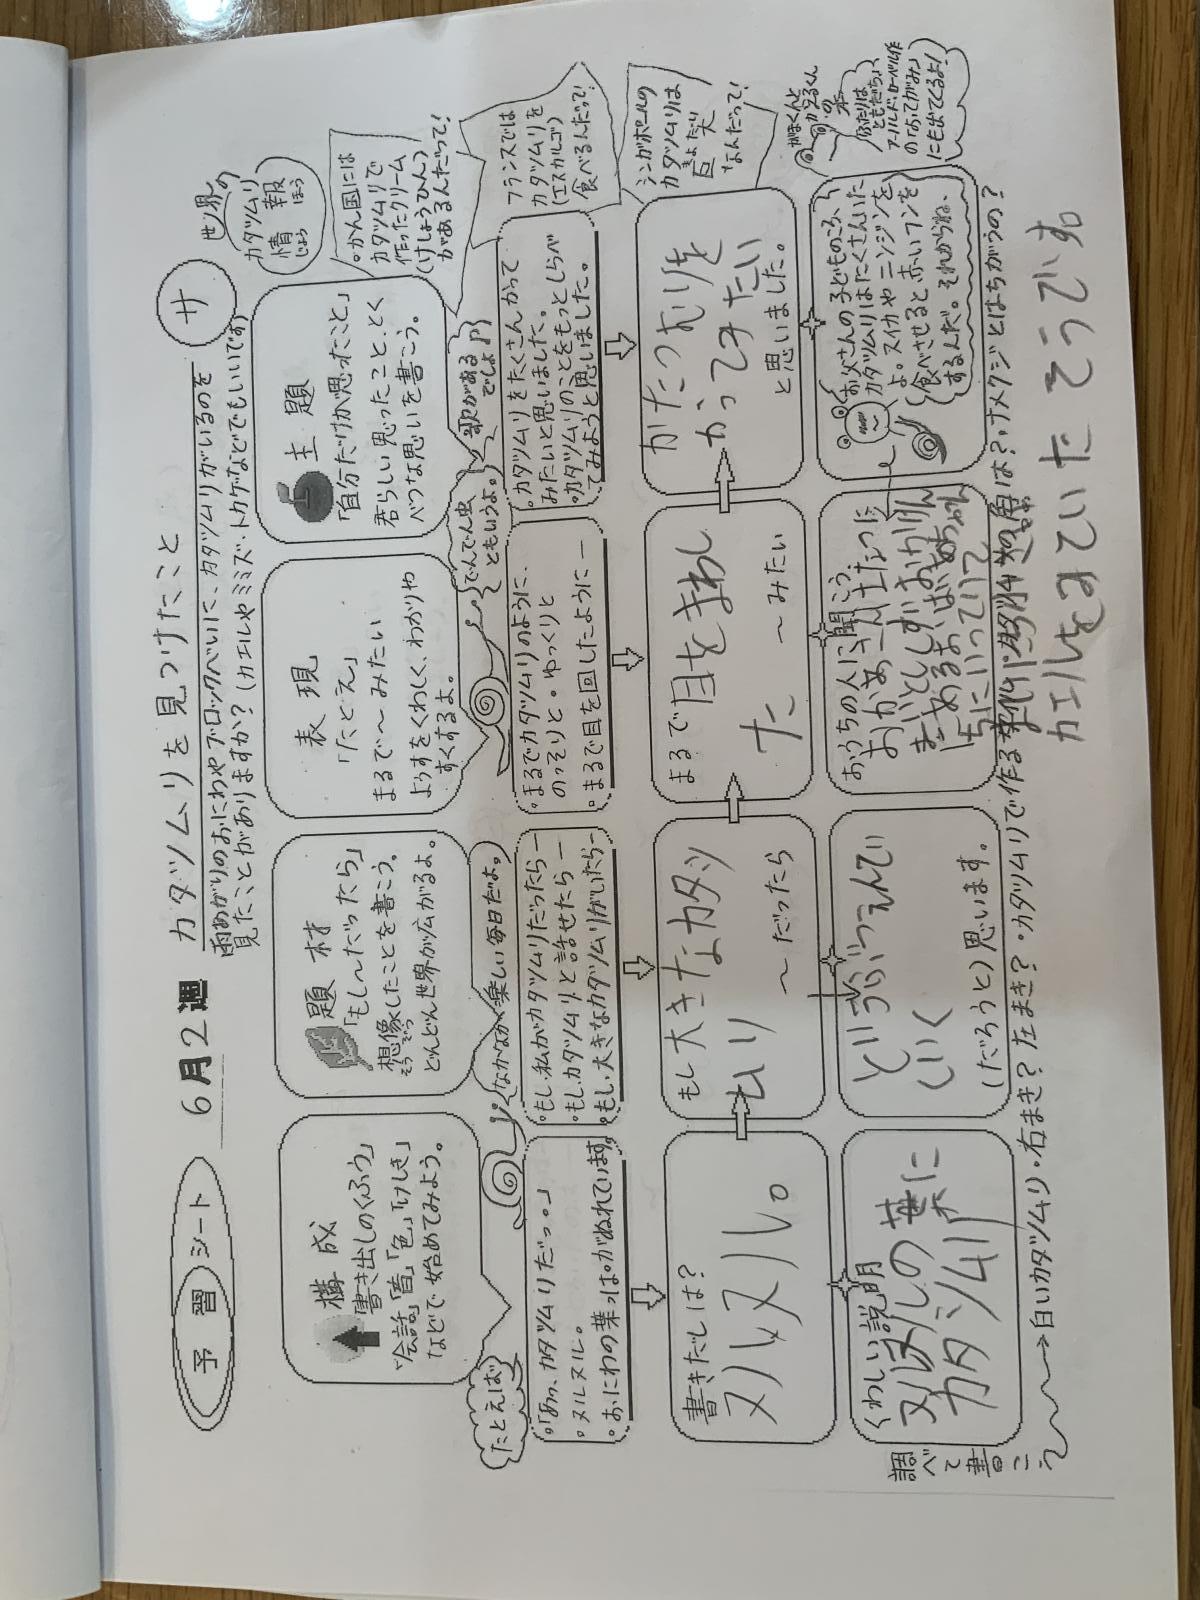 予習シート
6月2週
カタツムリを見つけたこと
サ
雨あがりのおにわやブロックべいに、カタツムリがいるのを
見たことがありますか？(カエルやミミズ・トカゲなどでもいいです)
世界の
カタツムリ
情報
じょうほう
構成
書き出しのくふう
「会話」「音」「色」「けしき」
などで始めてみよう。
題材
「もし〜だったら」
想像したことを書こう。
そうぞう
どんどん世界が広がるよ。
表現
「たとえ」
まるで〜みたい
ようすをくわしく、わかりや
すくするよ。
主題
「自分だけが思ったこと」
君らしい思ったこと、とく
べつな思いを書こう。
かん国には
カタツムリで
作ったクリーム
(けしょうひん)
があるんだって！
たとえば
なかなか楽しい毎日だよ。
でんでん虫
ともいうよ。
歌がある
でしょ♪
フランスでは
カタツムリを
(エスカルゴ)
食べるんだって！
。「あっ、カタツムリだっ。」
。ヌルヌル。
。おにわの葉っぱがぬれています。
。もし、私がカタツムリだったら―
。もし、カタツムリと話せたら―
。もし、大きなカタツムリがいたら―
。まるでカタツムリのように、
のっそりと。ゆっくりと
。まるで目を回したように―
。カタツムリをたくさんかって
みたいと思いました。
。カタツムリのことをもっとしらべ
てみようと思いました。
シンガポールの
カタツムリは
きょだい
巨大
なんだって！
書きだしは？
ヌルヌル。
もし大きなカタツ
ムリ
〜だったら
まるで目をまわし
た
〜みたい
かたつむりを
かってみたい
と思いました。
がまくんと
かえるくん
の本
「ふたりは
ともだち」、
アーノルド・ローベル作
の「おてがみ」
にも出てくるよ！
くわしい説明
ヌルヌルの葉に
カタツムリ
どうぶつえんで
(だろうと)思います。
おうちの人に聞こう。
お父さんの子どものころ、
カタツムリはたくさんいた
よ。スイカやニンジンを
食べさせると、赤いフンを
するんだ。それからね、
調べて書こう
→白いカタツムリ・右まき？左まき？・カタツムリで作る
は？・ナメクジとはちがうの？
カエルをみていたそうです